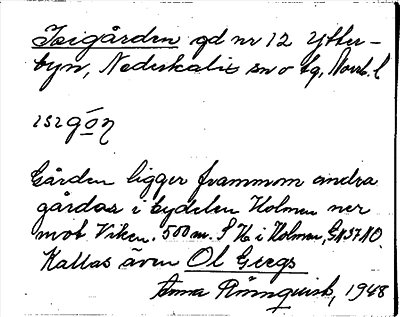 Isigården gd nr 12 Ytter-
byn, Nederkalix sn o tg, Norrb. l
ısıgo̱ń
Gården ligger frammom andra
gårdar i bydelen Holmen ner
mot Viken. 500 m. S H i Holmen, G
Kallas även Ol Gregs
Anna Rönnquist, 1948